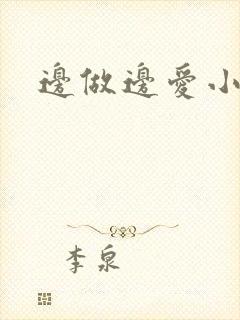 邊做邊愛小
李泉